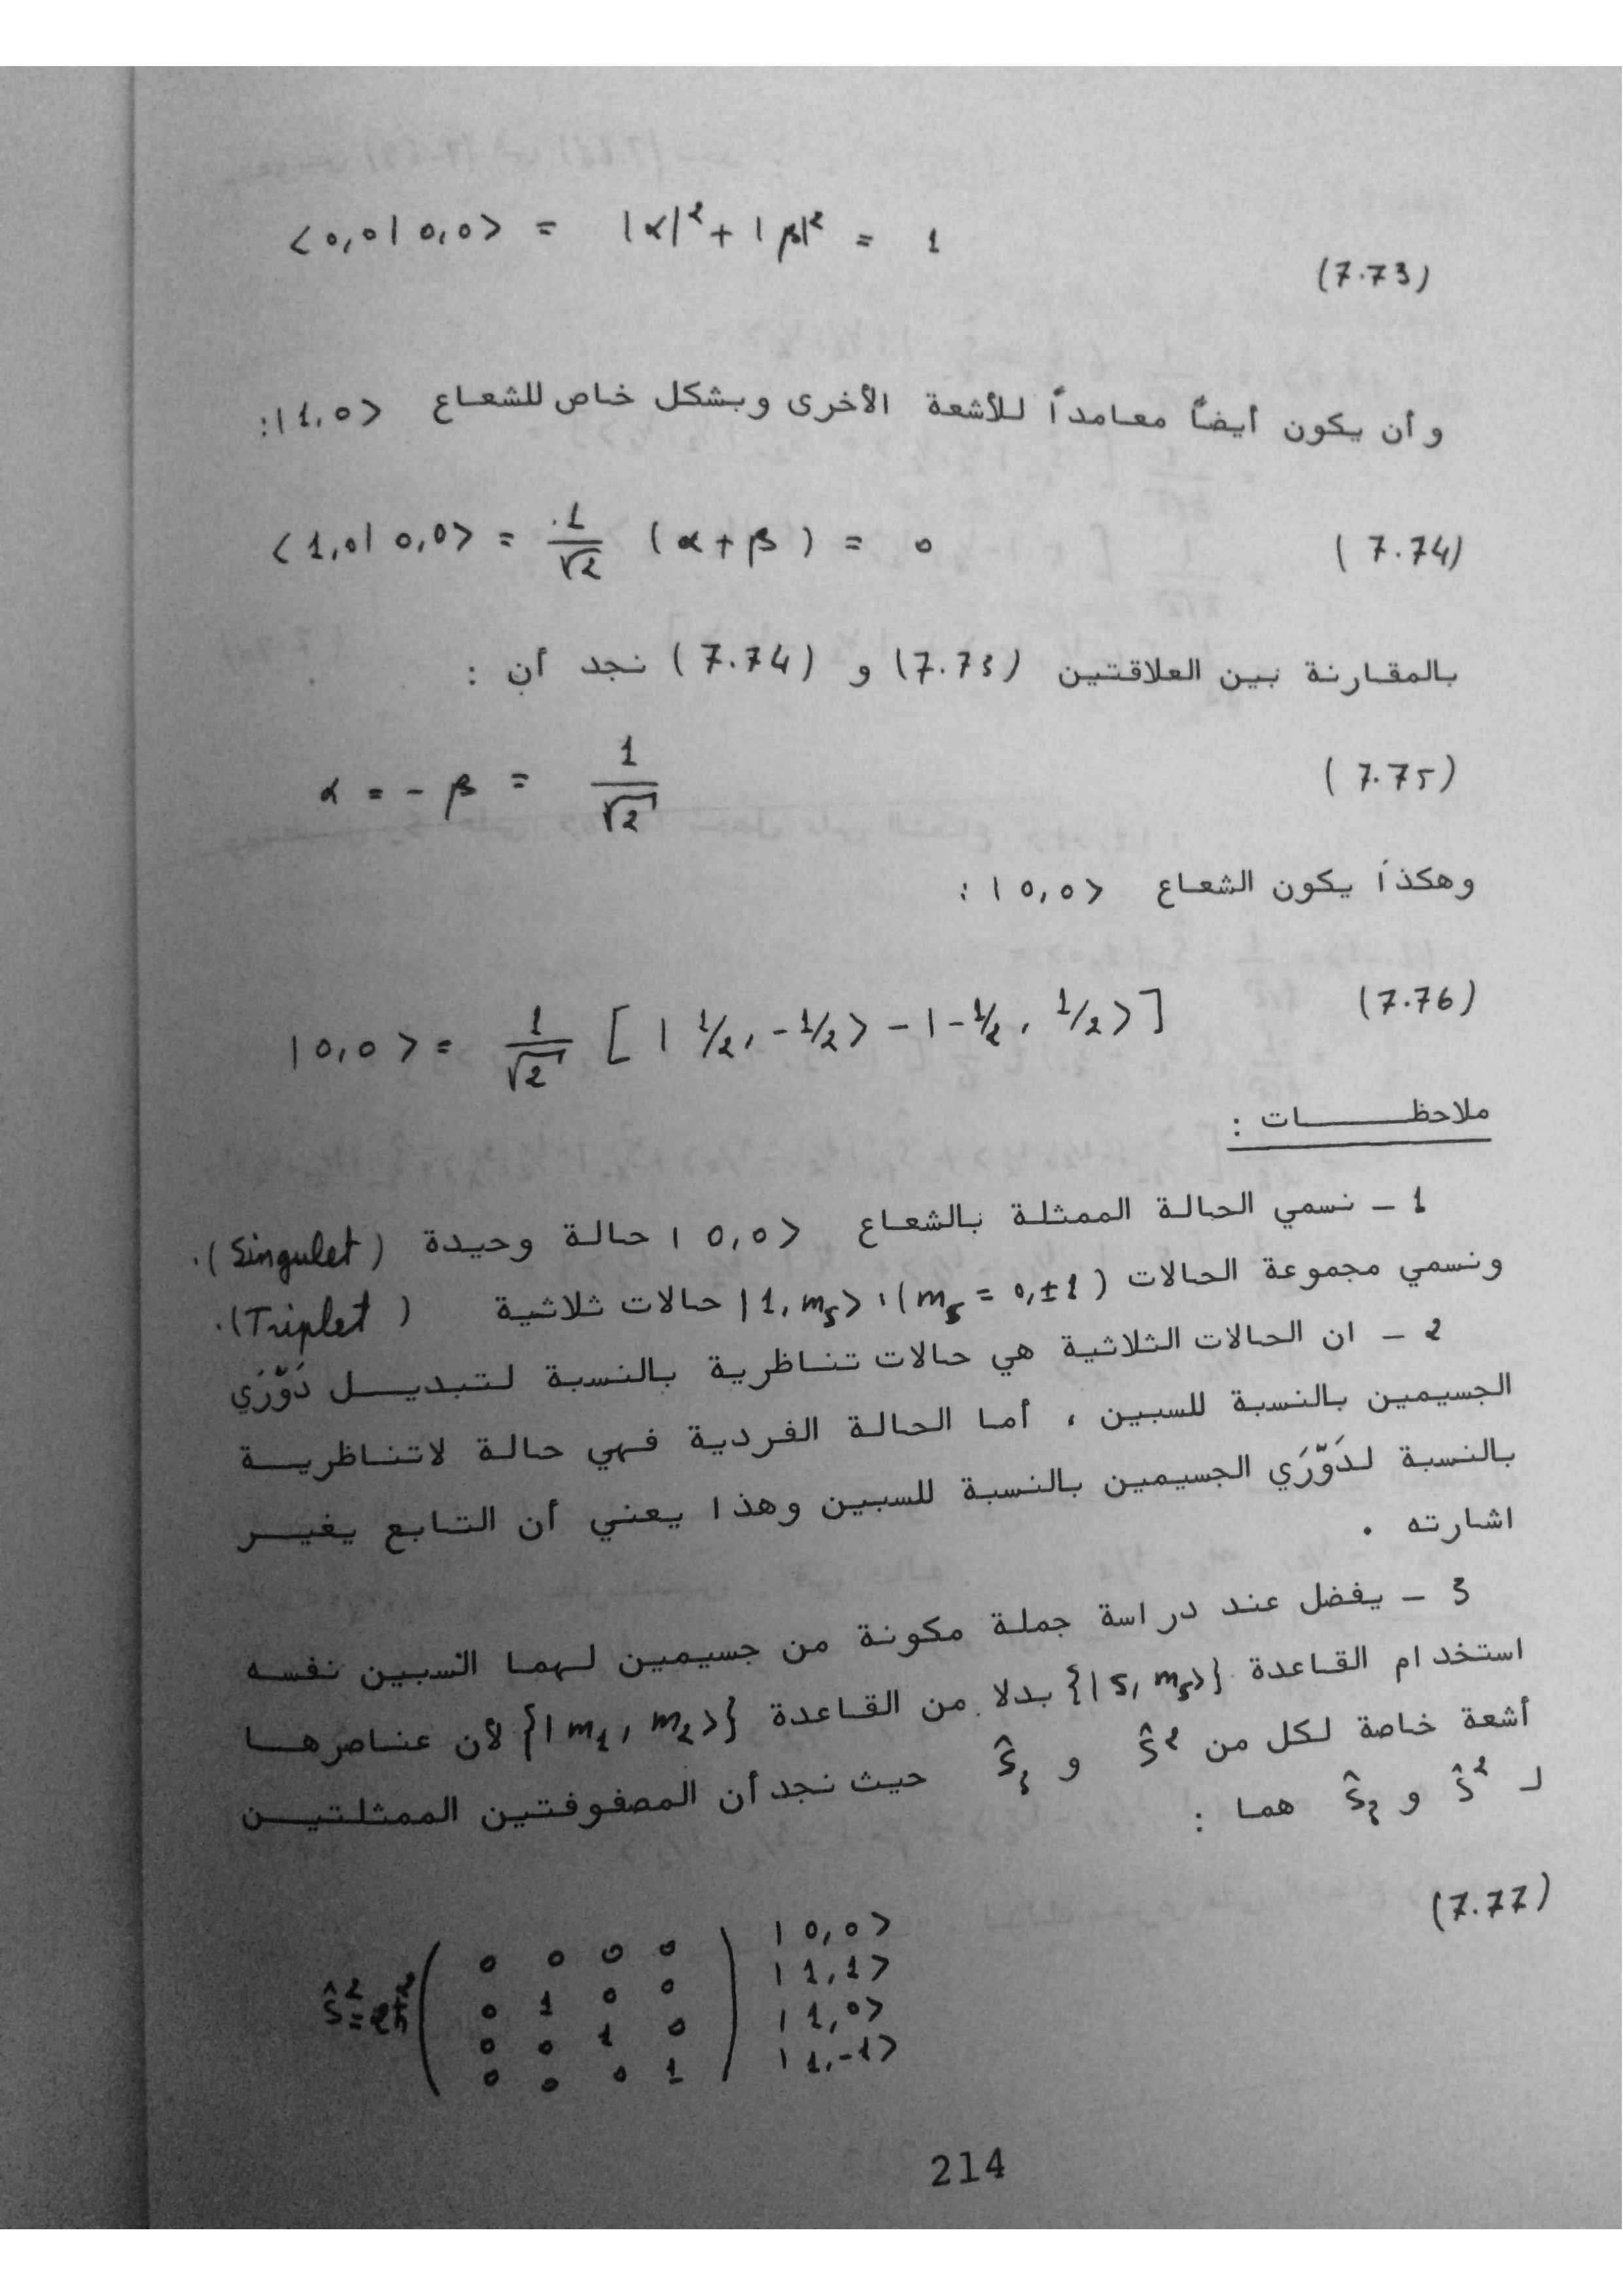 <0,0|0,0> = |α|² + |β|² = 1
(7.73)
وأن يكون أيضاً معامداً للأشعة الأخرى وبشكل خاص للشعاع |1,0>:
<1,0|0,0> = 1/√2 (α+β) = 0 (7.74)
بالمقارنة بين العلاقتين (7.73) و (7.74) نجد أن :
α = -β = 1/√2 (7.75)
وهكذا يكون الشعاع |0,0> :
|0,0> = 1/√2 [|1/2, -1/2> - |-1/2, 1/2>] (7.76)
ملاحظات :
1 - نسمي الحالة الممثلة بالشعاع |0,0> حالة وحيدة (Singulet).
ونسمي مجموعة الحالات |1, mₛ>، (mₛ = 0,±1) حالات ثلاثية (Triplet).
2 - ان الحالات الثلاثية هي حالات تناظرية بالنسبة لتبديل دَوّرَي
الجسيمين بالنسبة للسبين ، أما الحالة الفردية فهي حالة لاتناظرية
بالنسبة لدَوّرَي الجسيمين بالنسبة للسبين وهذا يعني أن التابع يغير
اشارته .
3 - يفضل عند دراسة جملة مكونة من جسيمين لهما السبين نفسه
استخدام القاعدة {|s, mₛ>} بدلا من القاعدة {|m₁, m₂>} لأن عناصرها
أشعة خاصة لكل من Ŝ² و Ŝz حيث نجد أن المصفوفتين الممثلتين
لـ Ŝ² و Ŝz هما :
(7.77)
Ŝ² = 2ħ² ( 0 0 0 0 ) |0,0>
0 1 0 0 |1,1>
0 0 1 0 |1,0>
0 0 0 1 |1,-1>
214